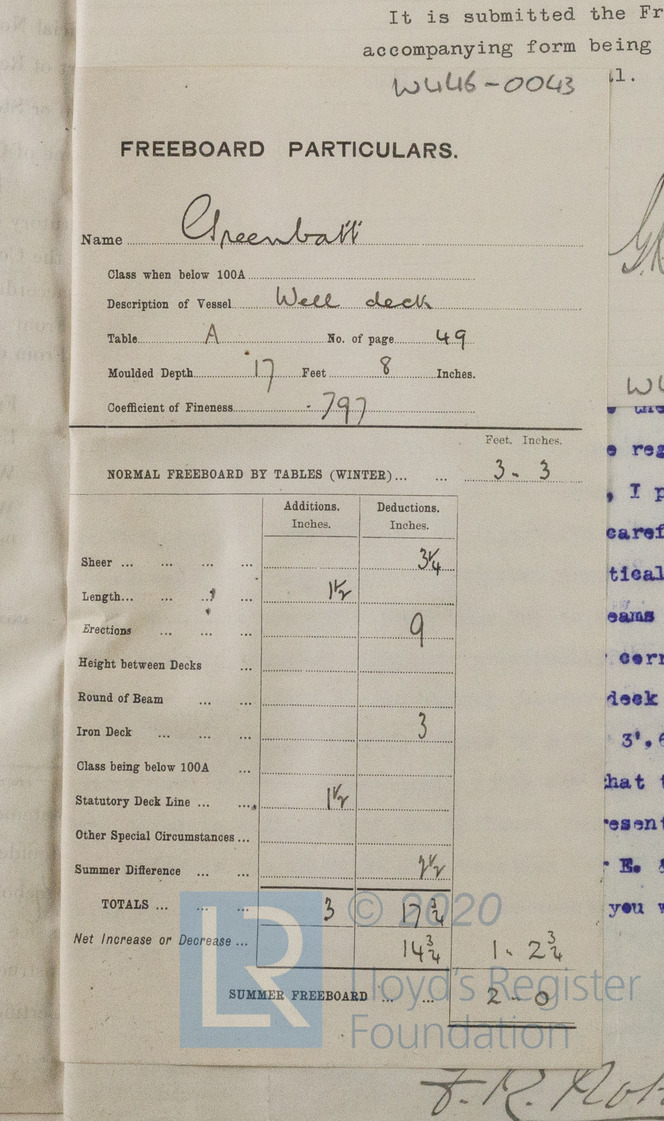 It is submitted the Fr
accompanying form being
W446-0043
l.
FREEBOARD PARTICULARS.
Name Greenbatt
Class when below 100A
Description of Vessel Well deck
Table A No. of page 49
Moulded Depth 17 Feet 8 Inches.
Coefficient of Fineness .797
Feet. Inches.
NORMAL FREEBOARD BY TABLES (WINTER)... ... 3 - 3
Additions. Inches. Deductions. Inches.
Sheer ... ... ... ...
Length... ... ... ... 1½
Erections ... ... ... 9
Height between Decks ...
Round of Beam ... ...
Iron Deck ... ... ... 3
Class being below 100A ...
Statutory Deck Line ... ... 1½
Other Special Circumstances...
Summer Difference ... ...
TOTALS ... ... ... 3 17¾
Net Increase or Decrease ... 14¾ 1 - 2¾
SUMMER FREEBOARD ... ... 2 - 0
e reg
, I p
caref
tical
eams
cerr
deck
3'.6
hat t
resent
E. &
you w
LR
© 2020
Lloyd's Register
Foundation